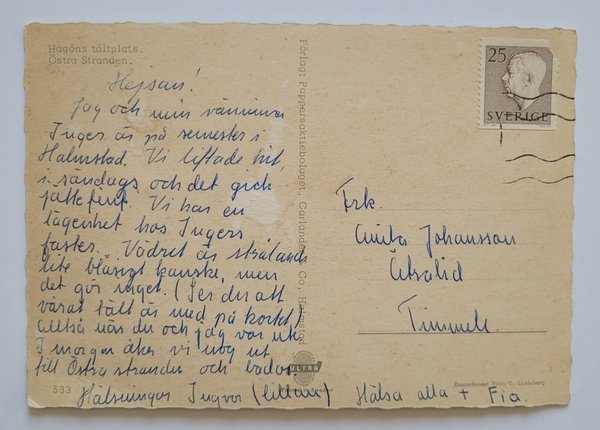 Hagöns tältplats.
Östra Stranden.
Hejsan!
Jag och min väninna
Inger är på semester i
Halmstad. Vi liftade hit,
i söndags och det gick
jättefint. Vi har en
lägenhet hos Ingers
faster. Vädret är strålande
lite blåsigt kanske, men
det gör inget. (Ser du att
vårat tält är med på kortet,
alltså när du och jag var ute
I morgon åker vi nog ut
till Östra stranden och badar
Hälsningar Ingvor (lillan) Hälsa alla + Fia.
533
Förlag: Pappersaktiebolaget, Carlander & Co, Halmstad
ULTRA
25
SVERIGE
Frk.
Anita Johansson
Ätralid
Timmele.
Ensamrätt Foto: C. Lindeberg